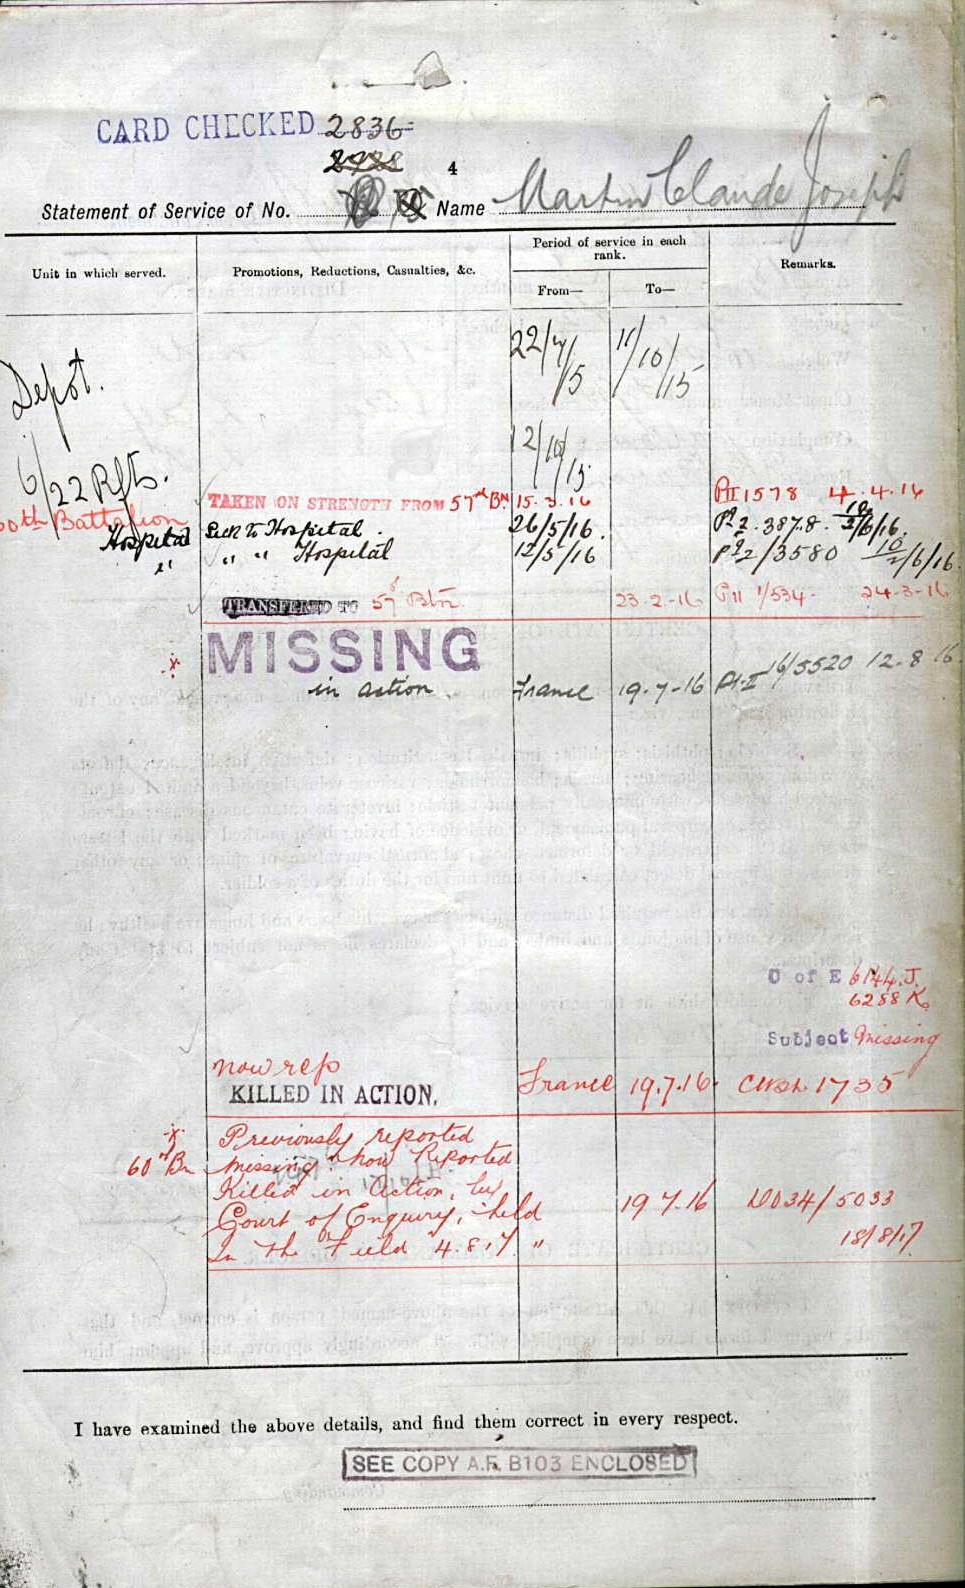 CARD CHECKED 2836
4
Statement of Service of No. Name Martin Claude Joseph
Unit in which served.
Promotions, Reductions, Casualties, &c.
Period of service in each rank.
From—
To—
Remarks.
Depot. 22/7/15 11/10/15
6/22 Rfts. 12/10/15
60th Battalion TAKEN ON STRENGTH FROM 57th Bn. 15.3.16 Pt II 1578 4.4.16
Hospital Sick to Hospital. 26/5/16. Pt 2. 3878.
" " " Hospital 12/5/16 Pt 2/3580 10/6/16
TRANSFERRED TO 57 Btn. 23-2-16 Pt II 1/534- 24-3-16
MISSING
in action France 19.7-16 Pt II 16/5520 12.8.16
C of E 6144.J.
6288 K.
Subject Missing
now rep
KILLED IN ACTION. France 19.7.16. 1735
60th Bn Previously reported
missing now Reported
Killed in Action, by
Court of Enquiry, held 19 7.16 D034/5033
In The Field 4.8.17. " 18/8/17
I have examined the above details, and find them correct in every respect.
SEE COPY A.F. B103 ENCLOSED